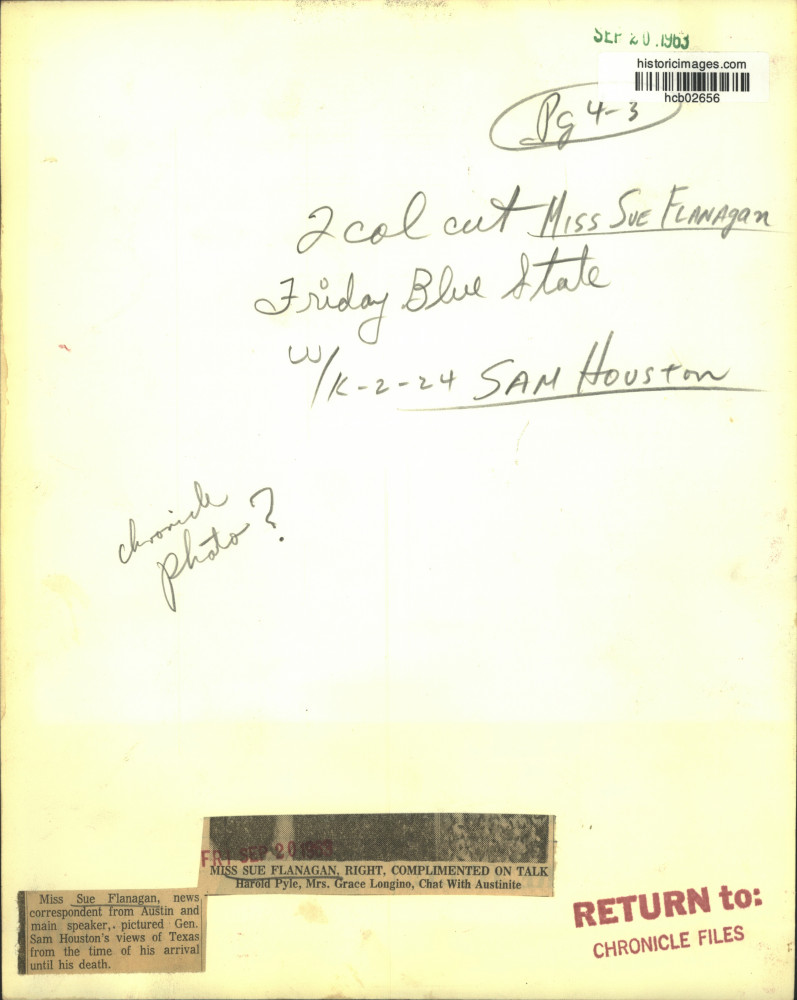 SEP 20 1963
historicimages.com
hcb02656
Pg 4-3
2 col cut Miss Sue Flanagan
Friday Blue State
w/K-2-24 Sam Houston
chronicle
photo?
FRI SEP 20 1963
MISS SUE FLANAGAN, RIGHT, COMPLIMENTED ON TALK
Harold Pyle, Mrs. Grace Longino, Chat With Austinite
Miss Sue Flanagan, news
correspondent from Austin and
main speaker,. pictured Gen.
Sam Houston's views of Texas
from the time of his arrival
until his death.
RETURN to:
CHRONICLE FILES